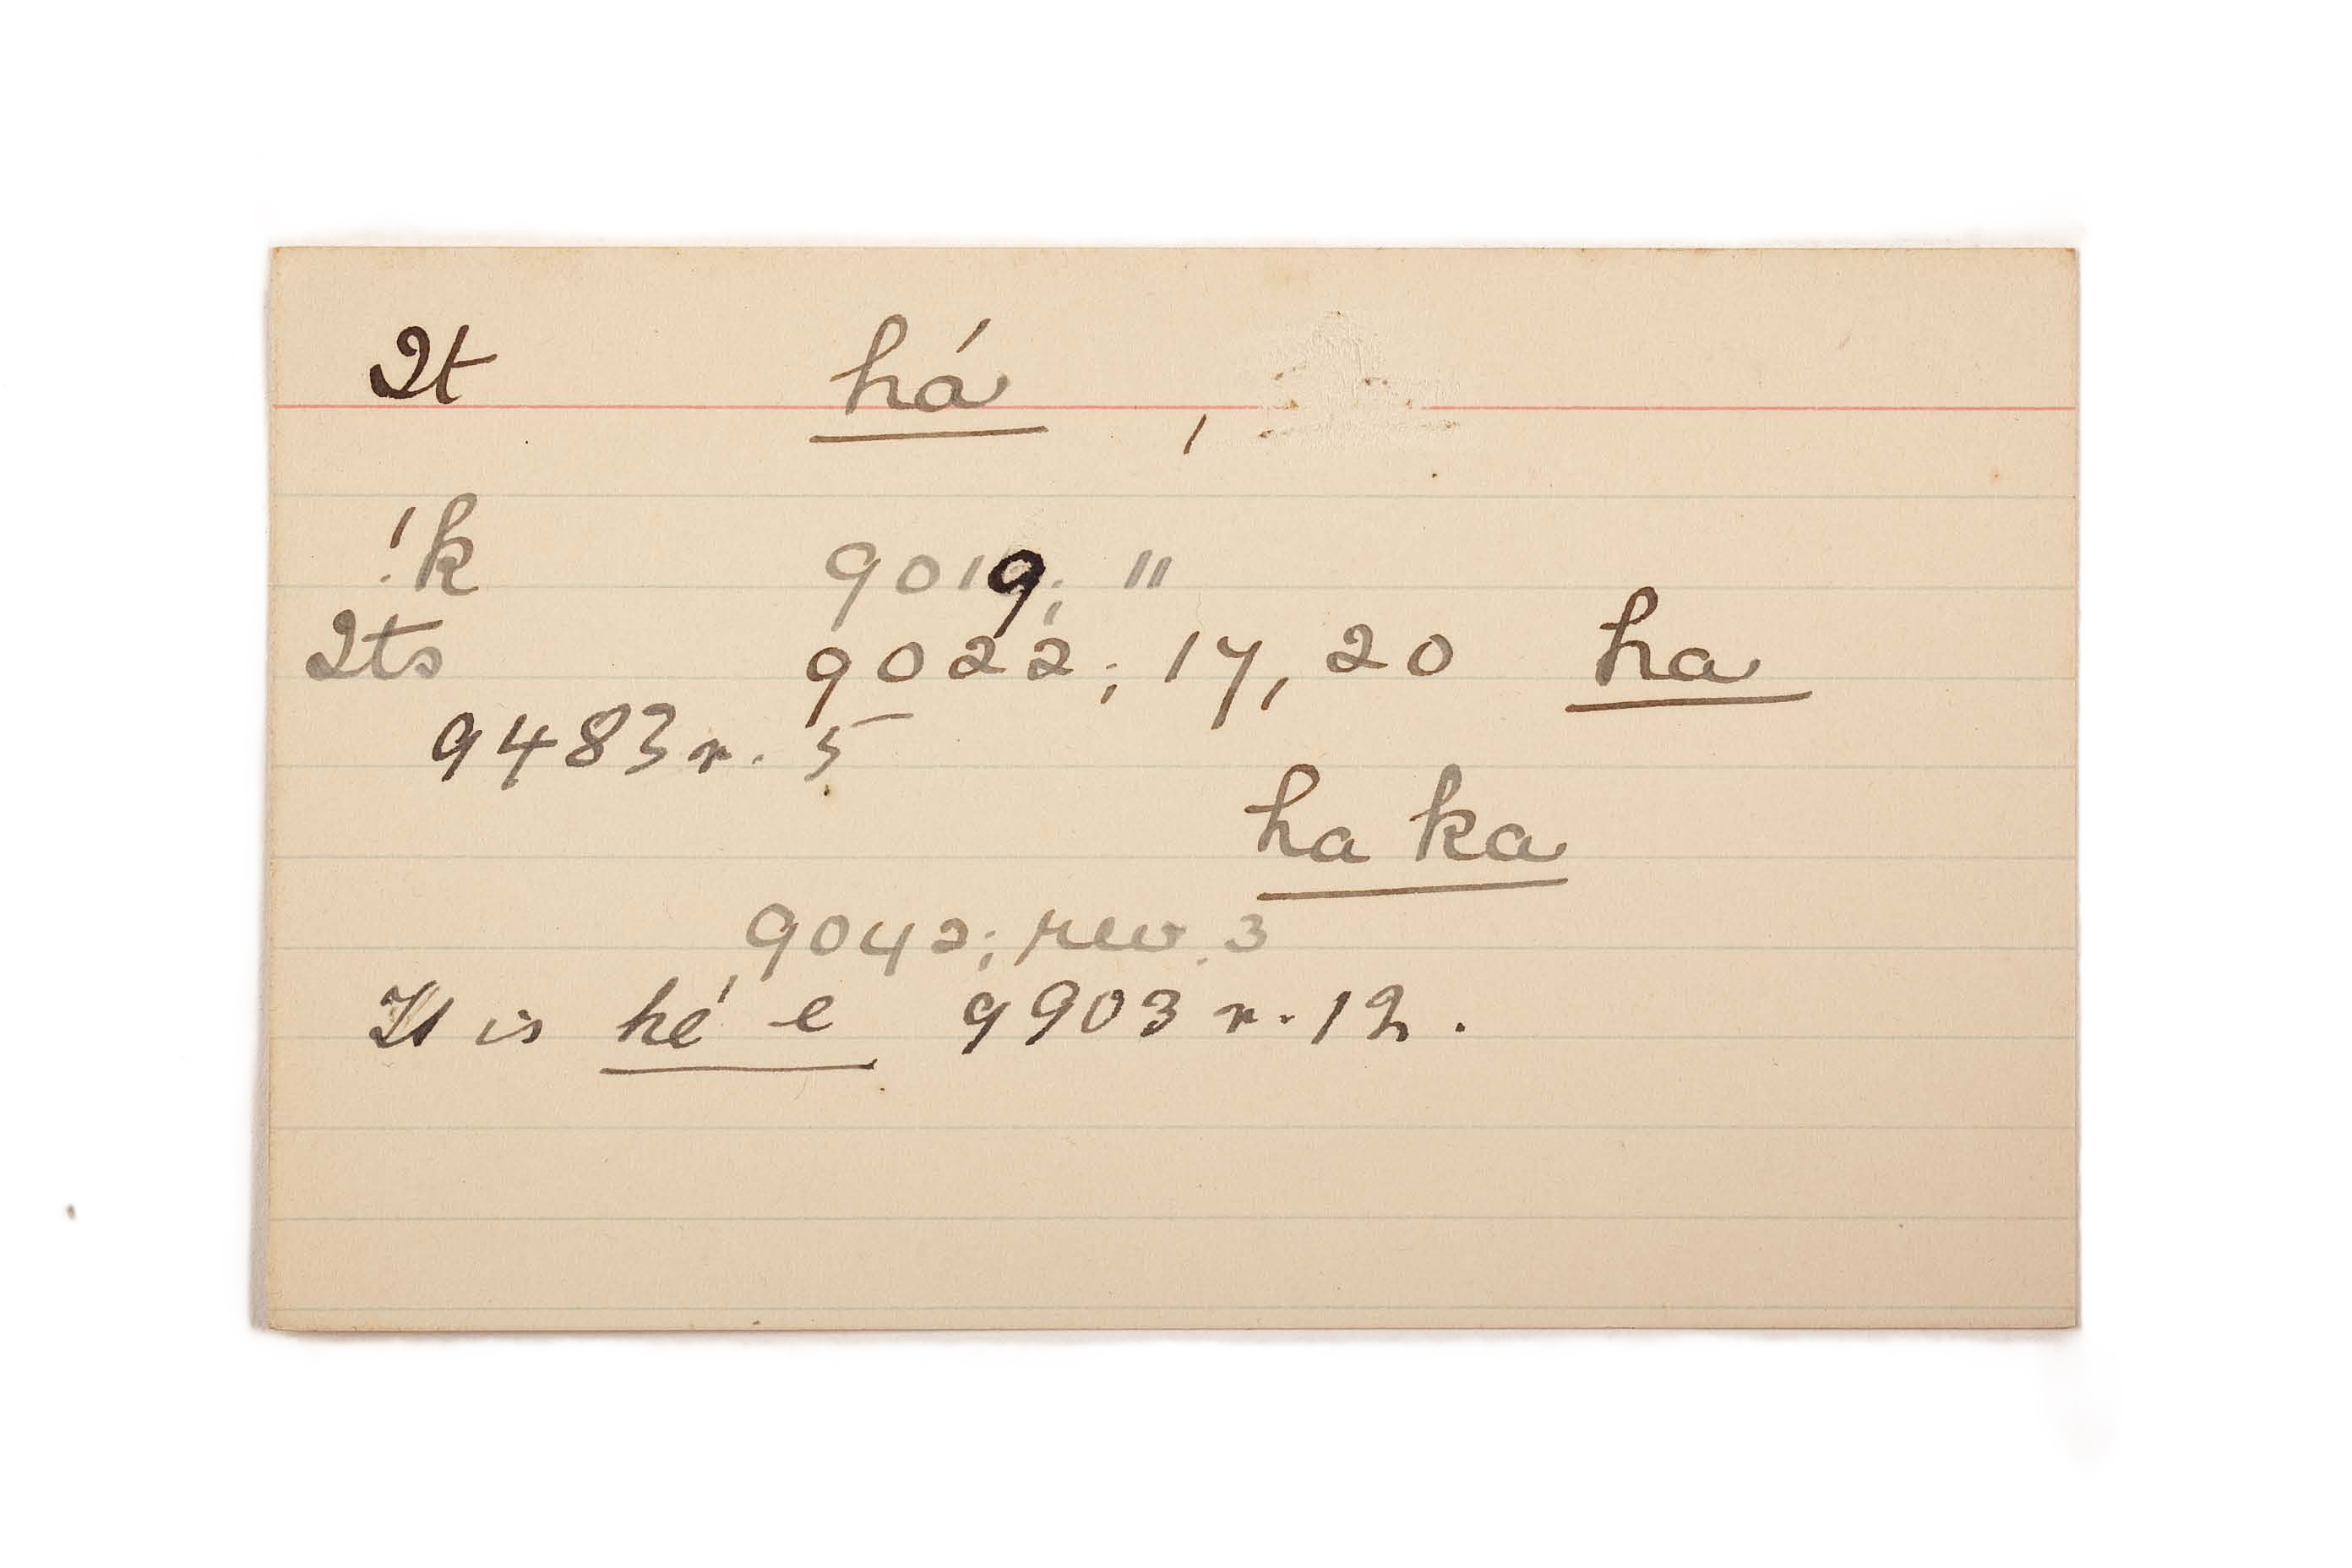 It há ,
!k 9019; 11
Its 9022; 17, 20 ha
9483 r. 5
ha ka
9042; rev. 3
It is hé e 9903 r. 12.